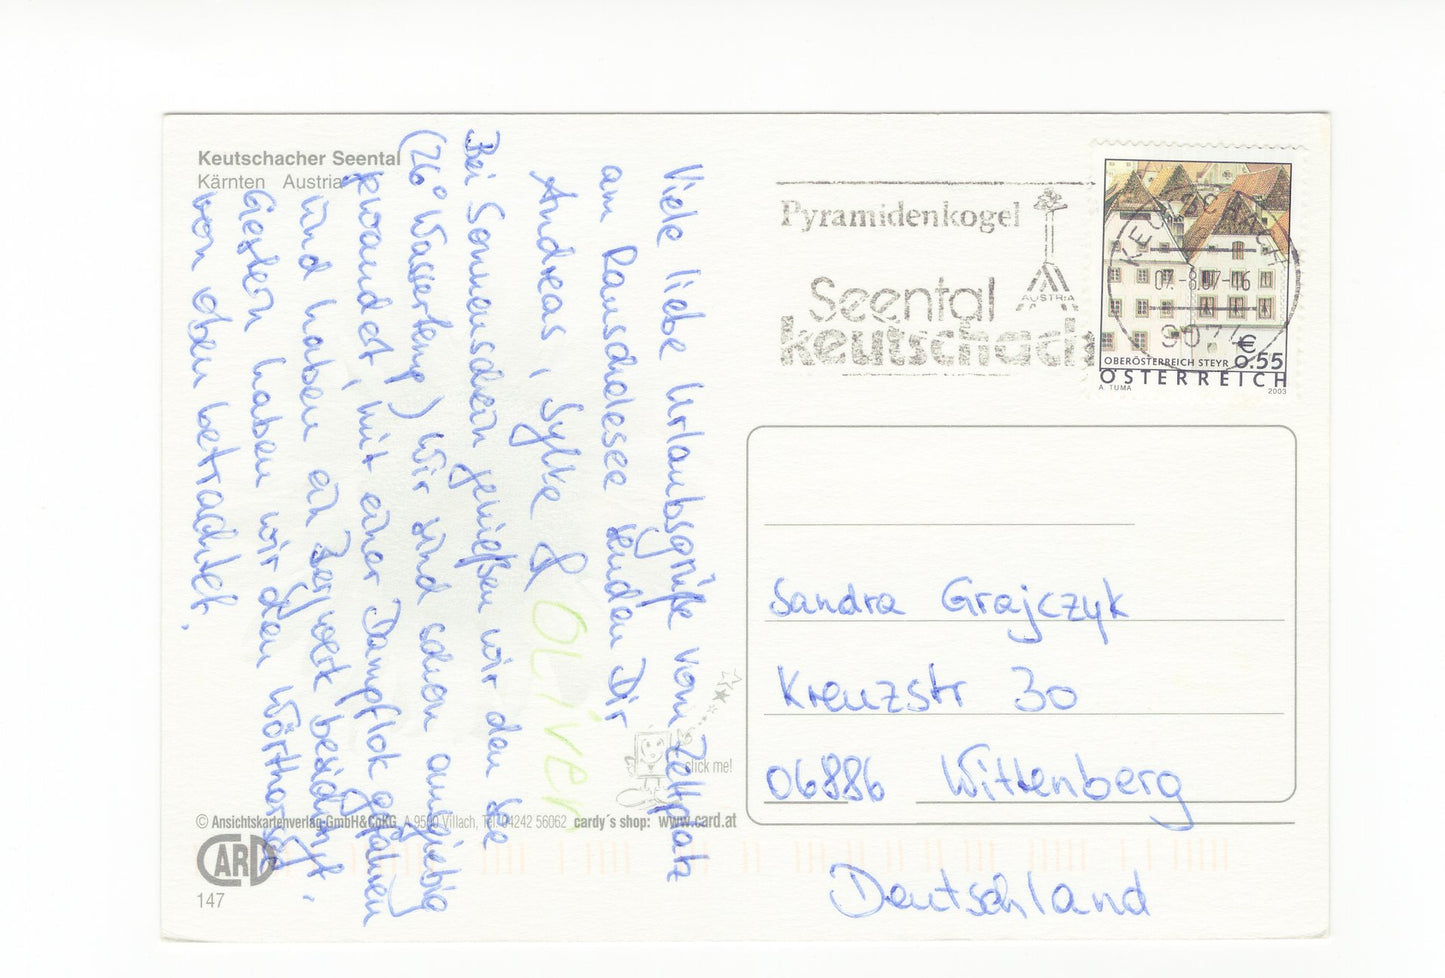 Keutschacher Seental
Kärnten Austria
Viele liebe Urlaubsgrüße vom Zeltplatz
am Rauschelesee senden Dir
Andreas, Sylke & OLiVER
Bei Sonnenschein genießen wir den See
(26° Wassertemp) Wir sind schon ausgiebig
gewandert, mit einer Dampflok gefahren
und haben ein Bergwerk besichtigt.
Gestern haben wir den Wörthersee
von oben betrachtet.
Pyramidenkogel
Seental
keutschach
AUSTRIA
KEUTSCHACH
07.-8.07-16
9074
€
0.55
OBERÖSTERREICH STEYR
ÖSTERREICH
A. TUMA
2003
Sandra Grajczyk
Kreuzstr 30
06886 Wittenberg
Deutschland
click me!
© Ansichtskartenverlag GmbH&CoKG, A 9500 Villach, Tel 04242 56062 cardy´s shop: www.card.at
CARD
147